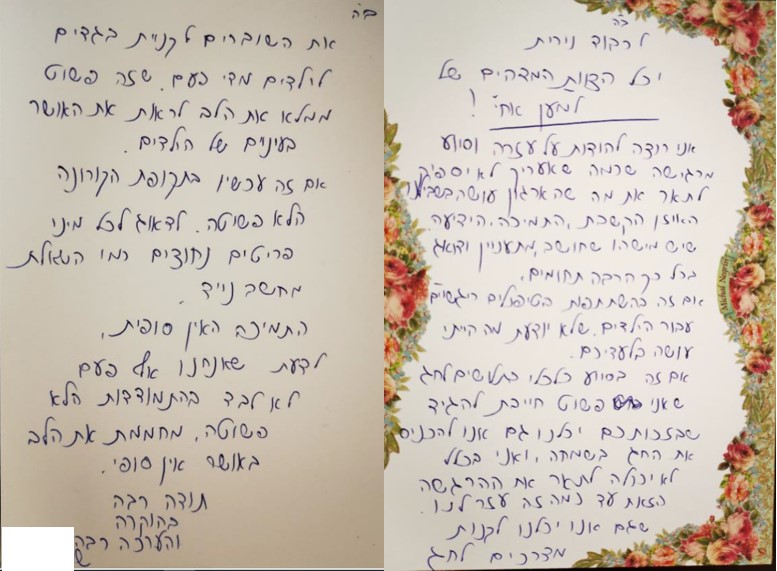 ב״ה
לכבוד נירית
וכל הצוות המדהים של
"למען אחי" !
אני רוצה להודות על עזרה וסיוע
מרגישה שכמה שאעריך לא יספיק
לתאר את מה שהארגון עושה בשבילנו
האוזן הקשבת, התמיכה, הידיעה
שיש מישהו שחושב, מתעניין ודואג
בכל כך הרבה תחומים.
אם זה בהשתתפות הטיפולים ריגשיים
עבור הילדים. שלא יודעת מה הייתי
עושה בלעדיכם.
אם זה בסיוע כלכלי בתלושים לחג
שאני פשוט חייבת להגיד
שבזכותכם יכלנו גם אנו להכניס
את החג בשמחה, ואני בכלל
לא יכולה לתאר את ההרגשה
הזאת עד כמה זה עזר לנו.
שגם אנו יכלנו לקנות
מצרכים לחג
Michal Negrin
ב״ה
את השוברים לקניית בגדים
לילדים מדי פעם. שזה פשוט
ממלא את הלב לראות את האושר
בעינים של הילדים.
אם זה עכשיו בתקופת הקורונה
הלא פשוטה. לדאוג לכל מיני
פריטים נחוצים כמו השאלת
מחשב נייד.
התמיכה האין סופית,
לדעת שאנחנו אף פעם
לא לבד בהתמודדות הלא
פשוטה, מחממת את הלב
באושר אין סופי.
תודה רבה
בהוקרה
והערכה רבה